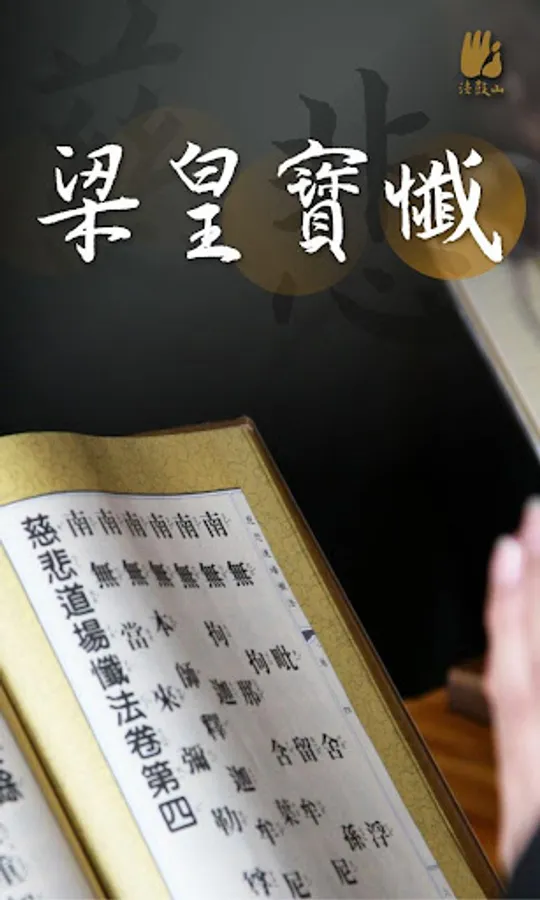 法鼓山
慈悲
梁皇寶懺
南無毗舍浮
南無拘留孫
南無拘那含牟尼
南無迦葉
南無本師釋迦牟尼
南無當來彌勒
慈悲道場懺法卷第四